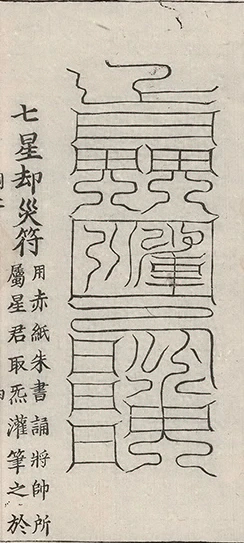 七星却災符
用赤紙朱書誦將帥所
屬星君取炁灌筆之於